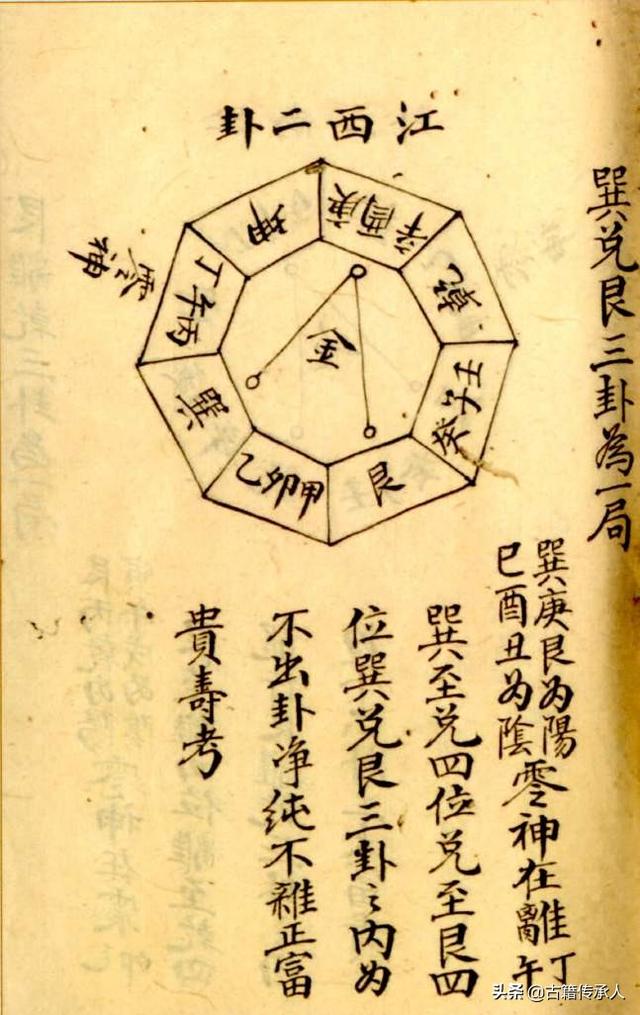 巽兌艮三卦為一局
江西二卦
坤
庚酉辛
乾
壬子癸
艮
甲卯乙
巽
丙午丁
零神
金
巽庚艮为陽
巳酉丑为陰
零神在離丁午
巽至兌四位兌至艮四
位巽兌艮三卦之内为
不出卦净純不雜正富
貴壽考
头条 @古籍传承人